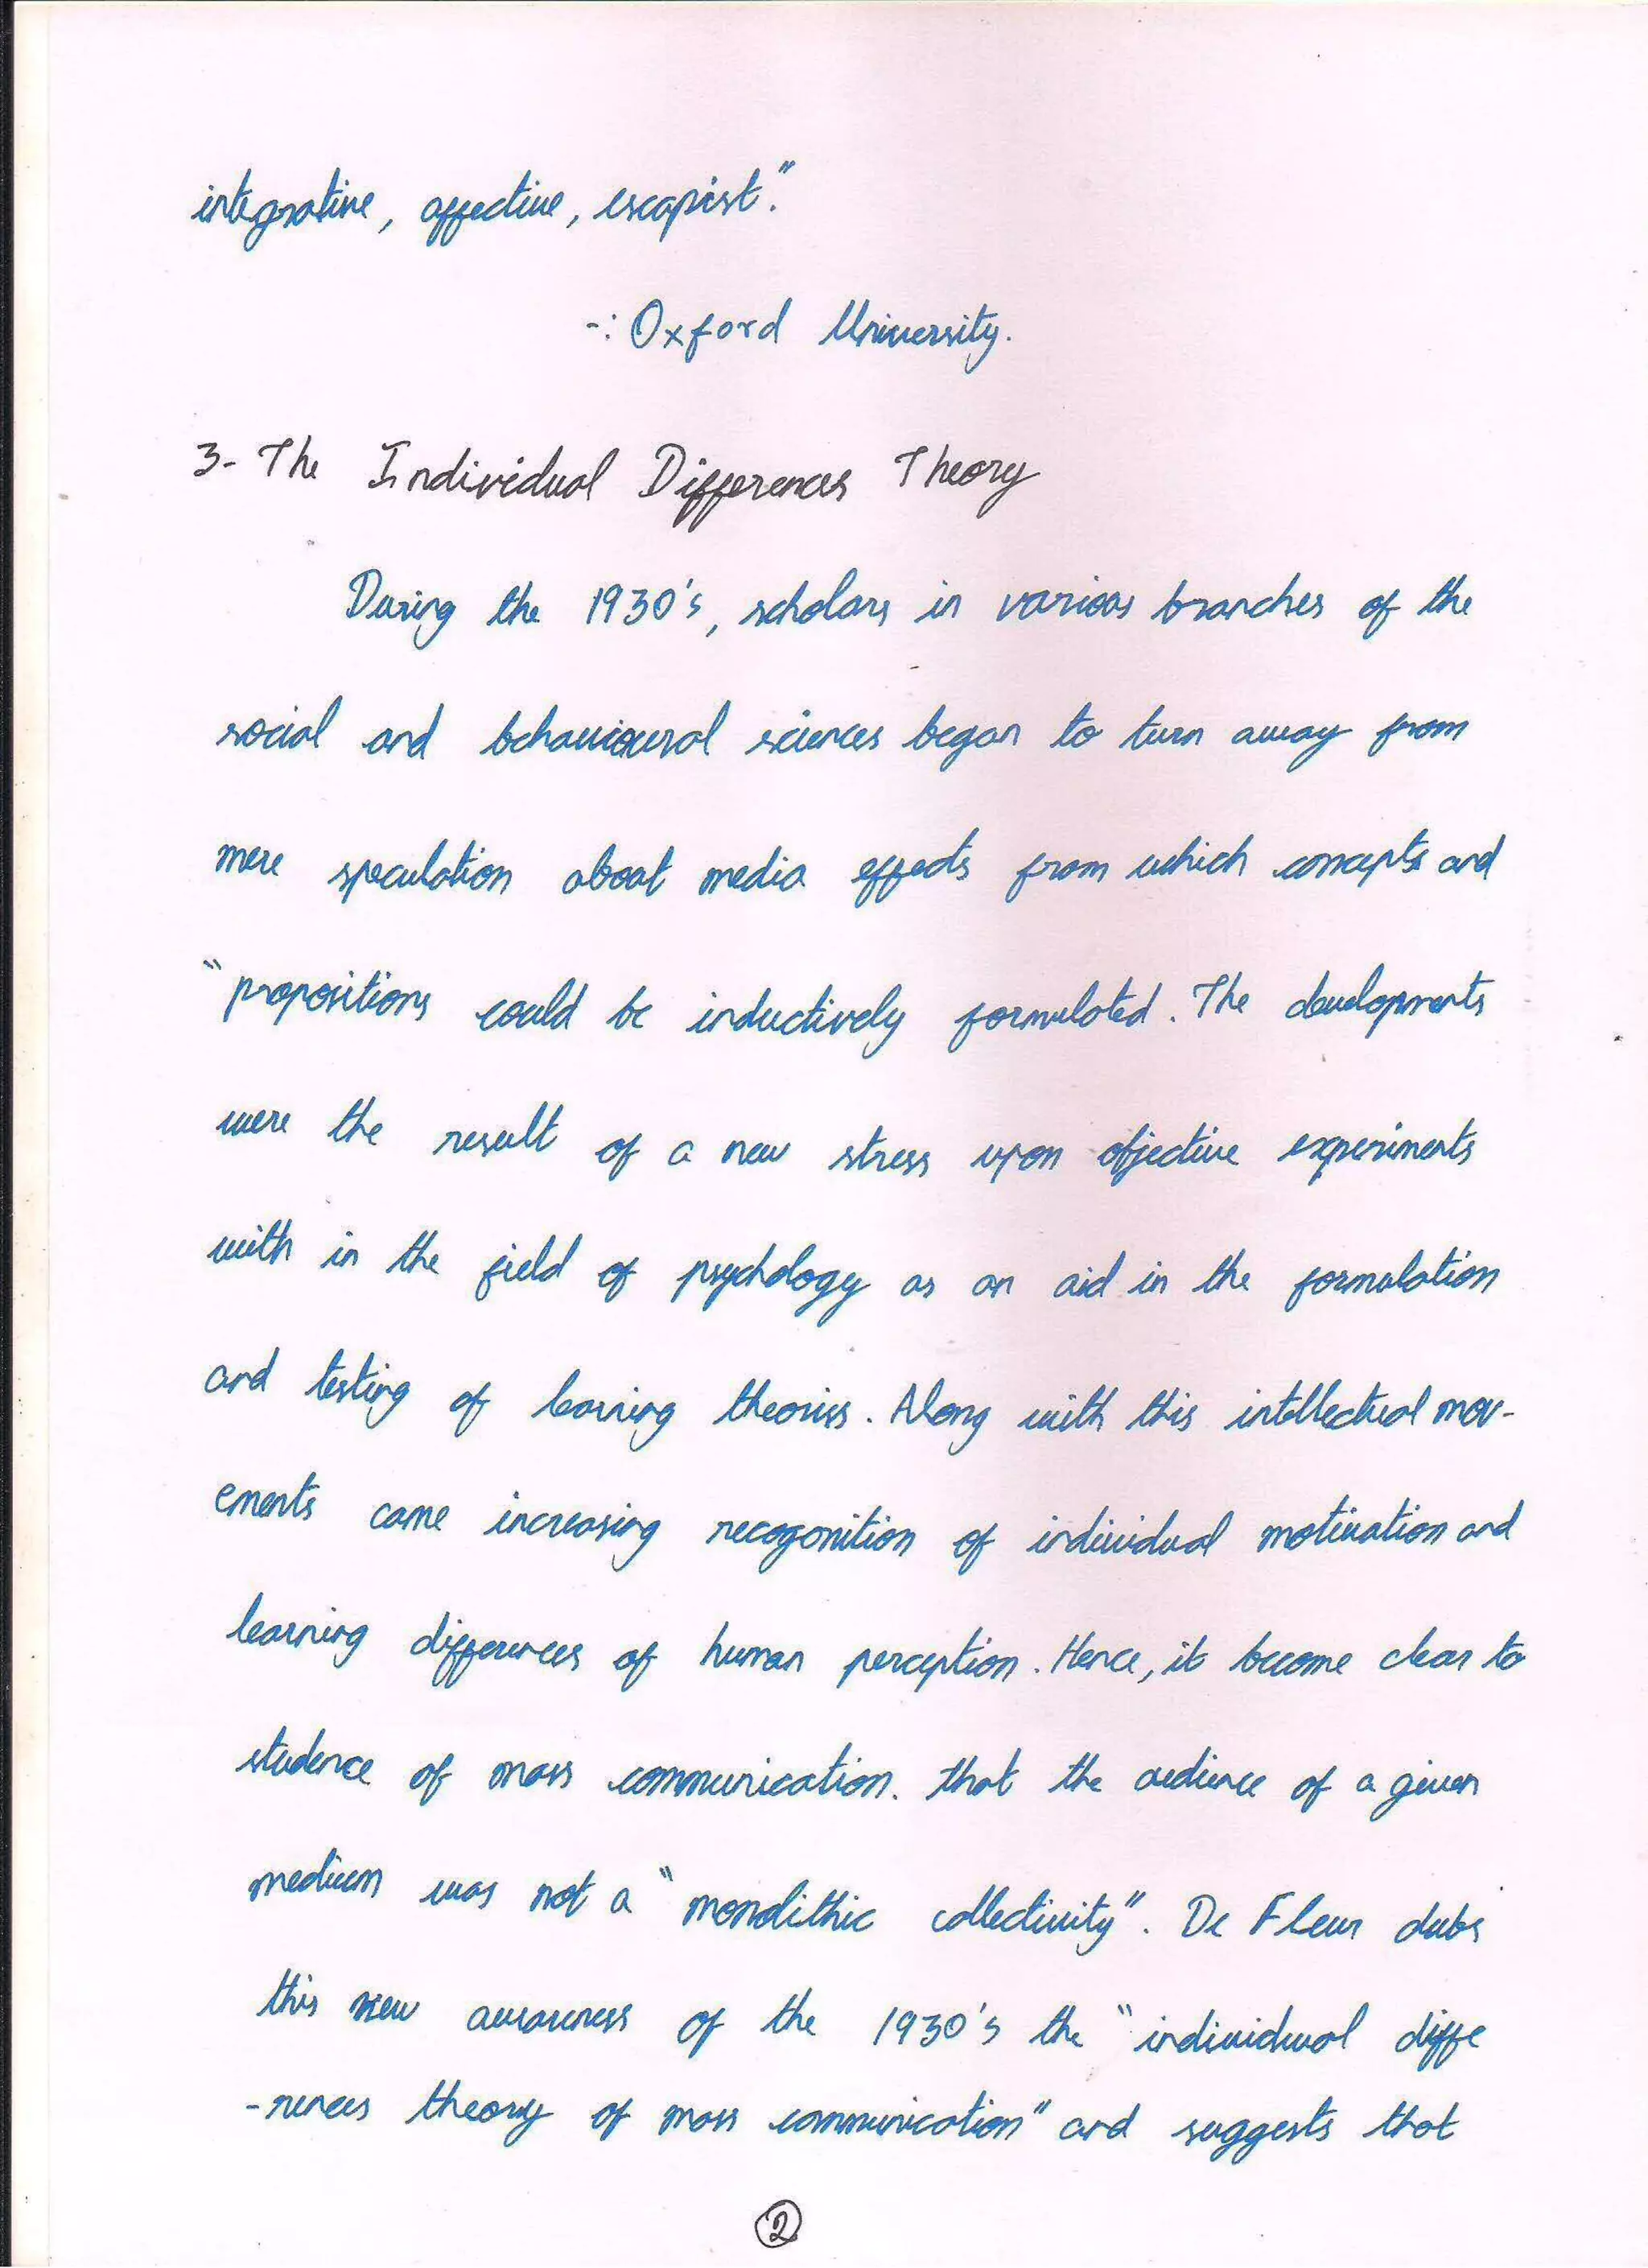 integrative, affective, escapist."
-: Oxford University.
3- The Individual Differences Theory
During the 1930's, scholars in various branches of the
social and behavioural sciences began to turn away from
mere speculation about media effects from which concepts and
"propositions could be inductively formulated. The developments
were the result of a new stress upon objective experiments
with in the field of psychology as an aid in the formulation
and testing of learning theories. Along with this intellectual mov-
ements came increasing recogonition of individual motivation and
learning differences of human perception. Hence, it become clear to
studence of mass communication. that the audience of a given
medium was not a "monolithic collectivity". De Fleur dubs
this new awareness of the 1930's the "individual diffe
-rences theory of mass communication" and suggests that
2